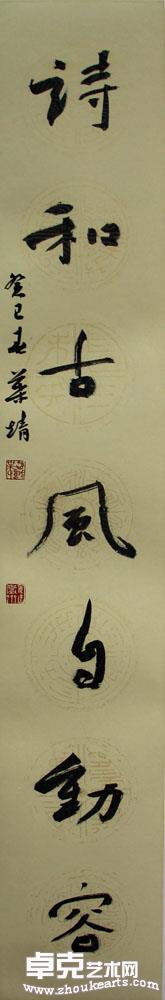 詩和古風自動容
癸巳春葉靖
卓克艺术网
www.zhoukearts.com